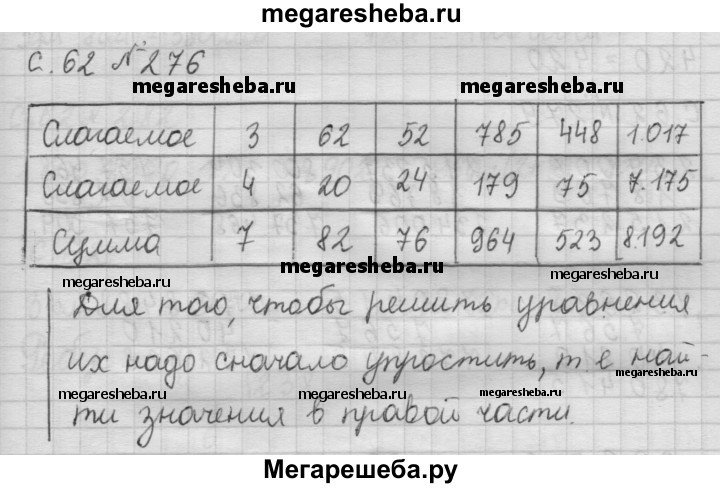 megaresheba.ru
с. 62 № 276
megaresheba.ru megaresheba.ru
Слагаемое 3 62 52 785 448 1.017
Слагаемое 4 20 24 179 75 7.175
Сумма 7 82 76 964 523 8.192
megaresheba.ru megaresheba.ru megaresheba.ru
Для того, чтобы решить уравнения
их надо сначало упростить, т е най-
megaresheba.ru
megaresheba.ru megaresheba.ru megaresheba.ru
ти значения в правой части.
Мегарешеба.ру